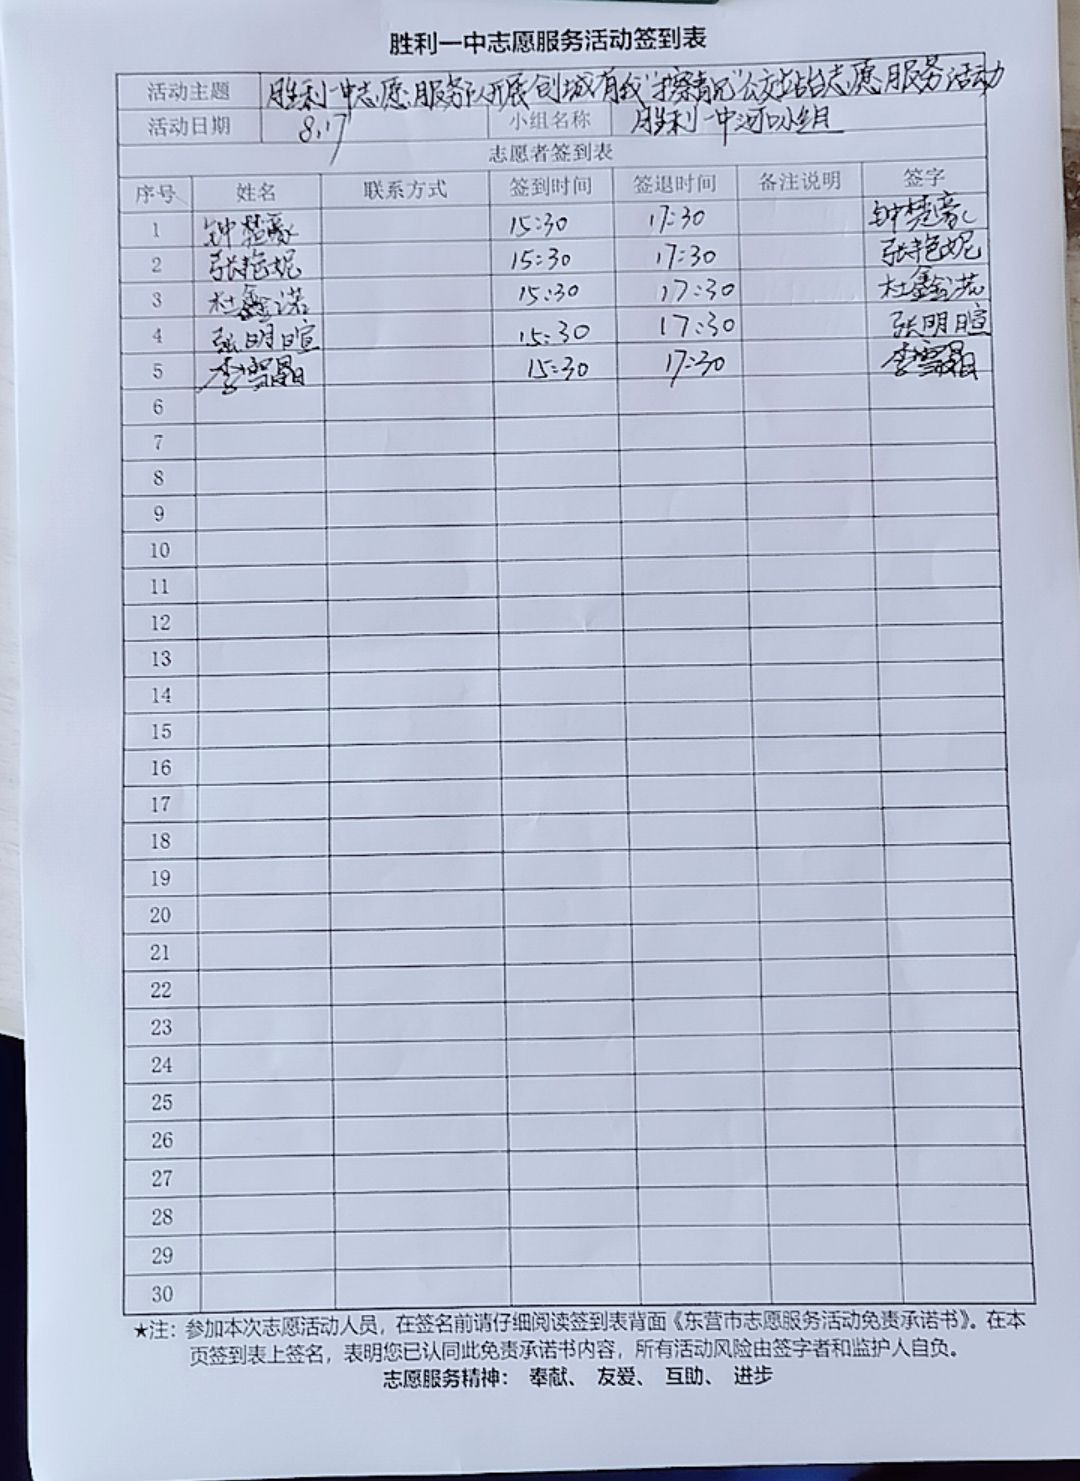 胜利一中志愿服务活动签到表
活动主题 胜利一中志愿服务队开展创城有我"擦亮"公交站台志愿服务活动
活动日期 8.17 小组名称 胜利一中河口小组
志愿者签到表
序号 姓名 联系方式 签到时间 签退时间 备注说明 签字
1 钟楚豪 15:30 17:30 钟楚豪
2 张艳妮 15:30 17:30 张艳妮
3 杜鑫诺 15:30 17:30 杜鑫诺
4 张明暄 15:30 17:30 张明暄
5 李雪晶 15:30 17:30 李雪晶
6
7
8
9
10
11
12
13
14
15
16
17
18
19
20
21
22
23
24
25
26
27
28
29
30
★注：参加本次志愿活动人员，在签名前请仔细阅读签到表背面《东营市志愿服务活动免责承诺书》。在本
页签到表上签名，表明您已认同此免责承诺书内容，所有活动风险由签字者和监护人自负。
志愿服务精神： 奉献、 友爱、 互助、 进步